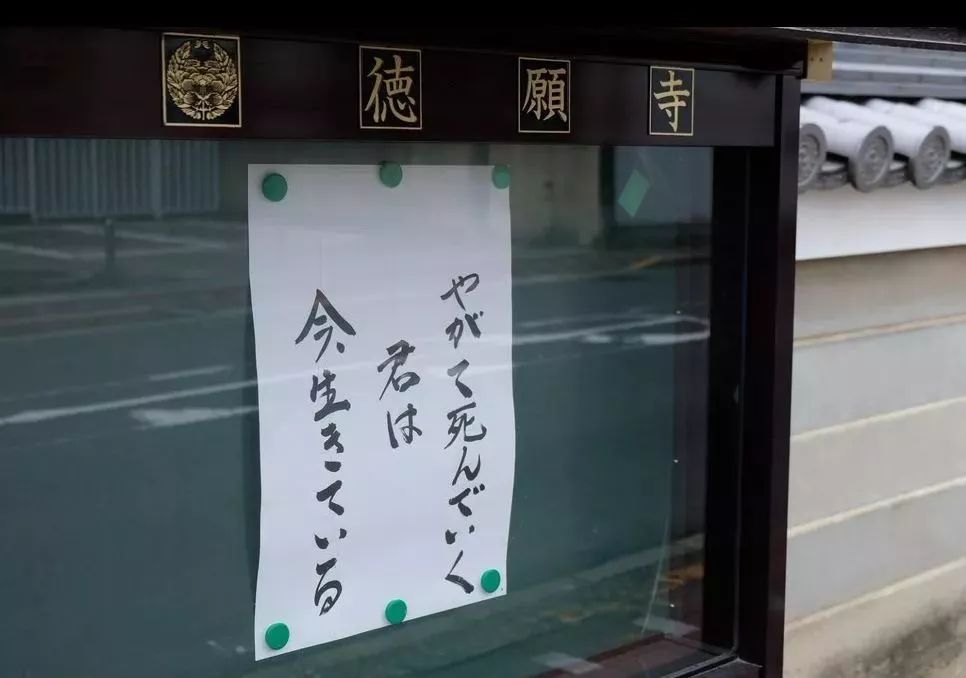 徳願寺
やがて死んでいく
君は
今、生きている